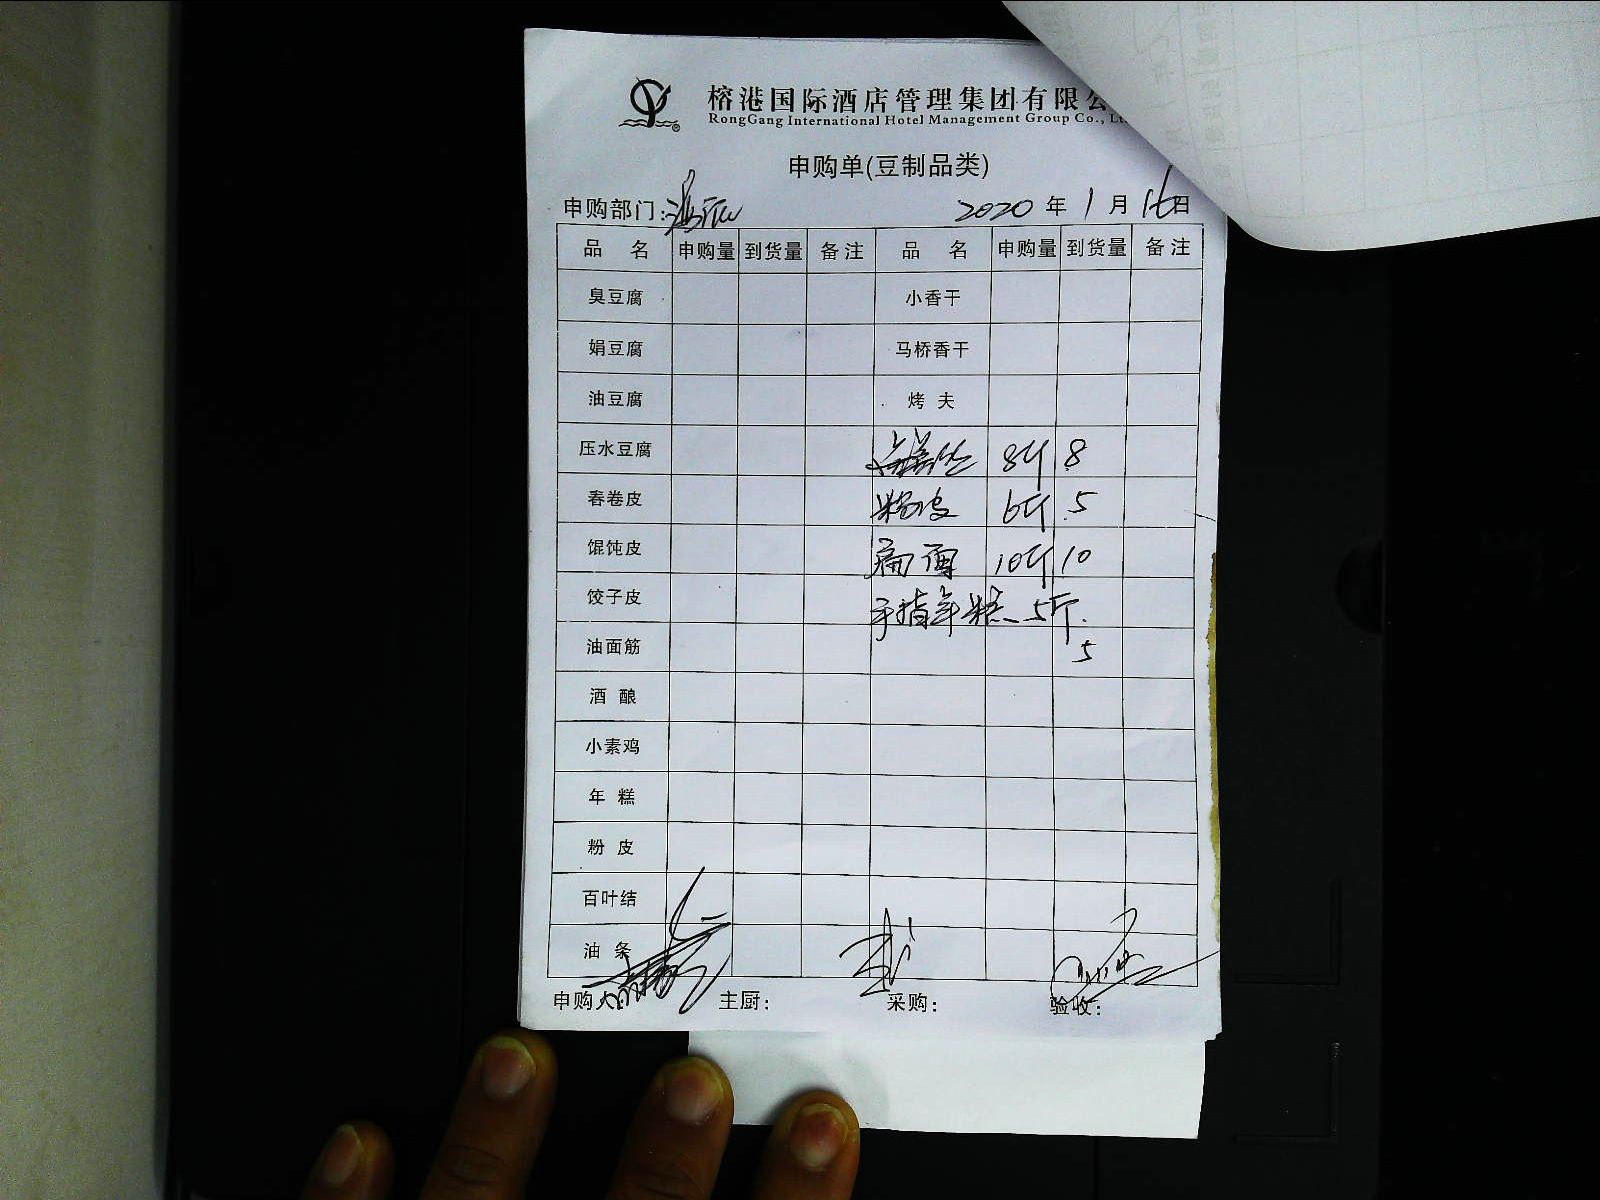 榕港国际酒店管理集团有限公
RongGang International Hotel Management Group Co., Lt
申购单(豆制品类)
申购部门: 2020 年 1 月 16 日
品 名 申购量 到货量 备注 品 名 申购量 到货量 备注
臭豆腐 小香干
娟豆腐 马桥香干
油豆腐 烤 夫
压水豆腐 8斤 8
春卷皮 粉皮 6斤 5
馄饨皮 扁面 10斤 10
饺子皮 手指年糕 5斤
油面筋 5
酒 酿
小素鸡
年 糕
粉 皮
百叶结
油 条
申购人: 主厨: 采购: 验收: